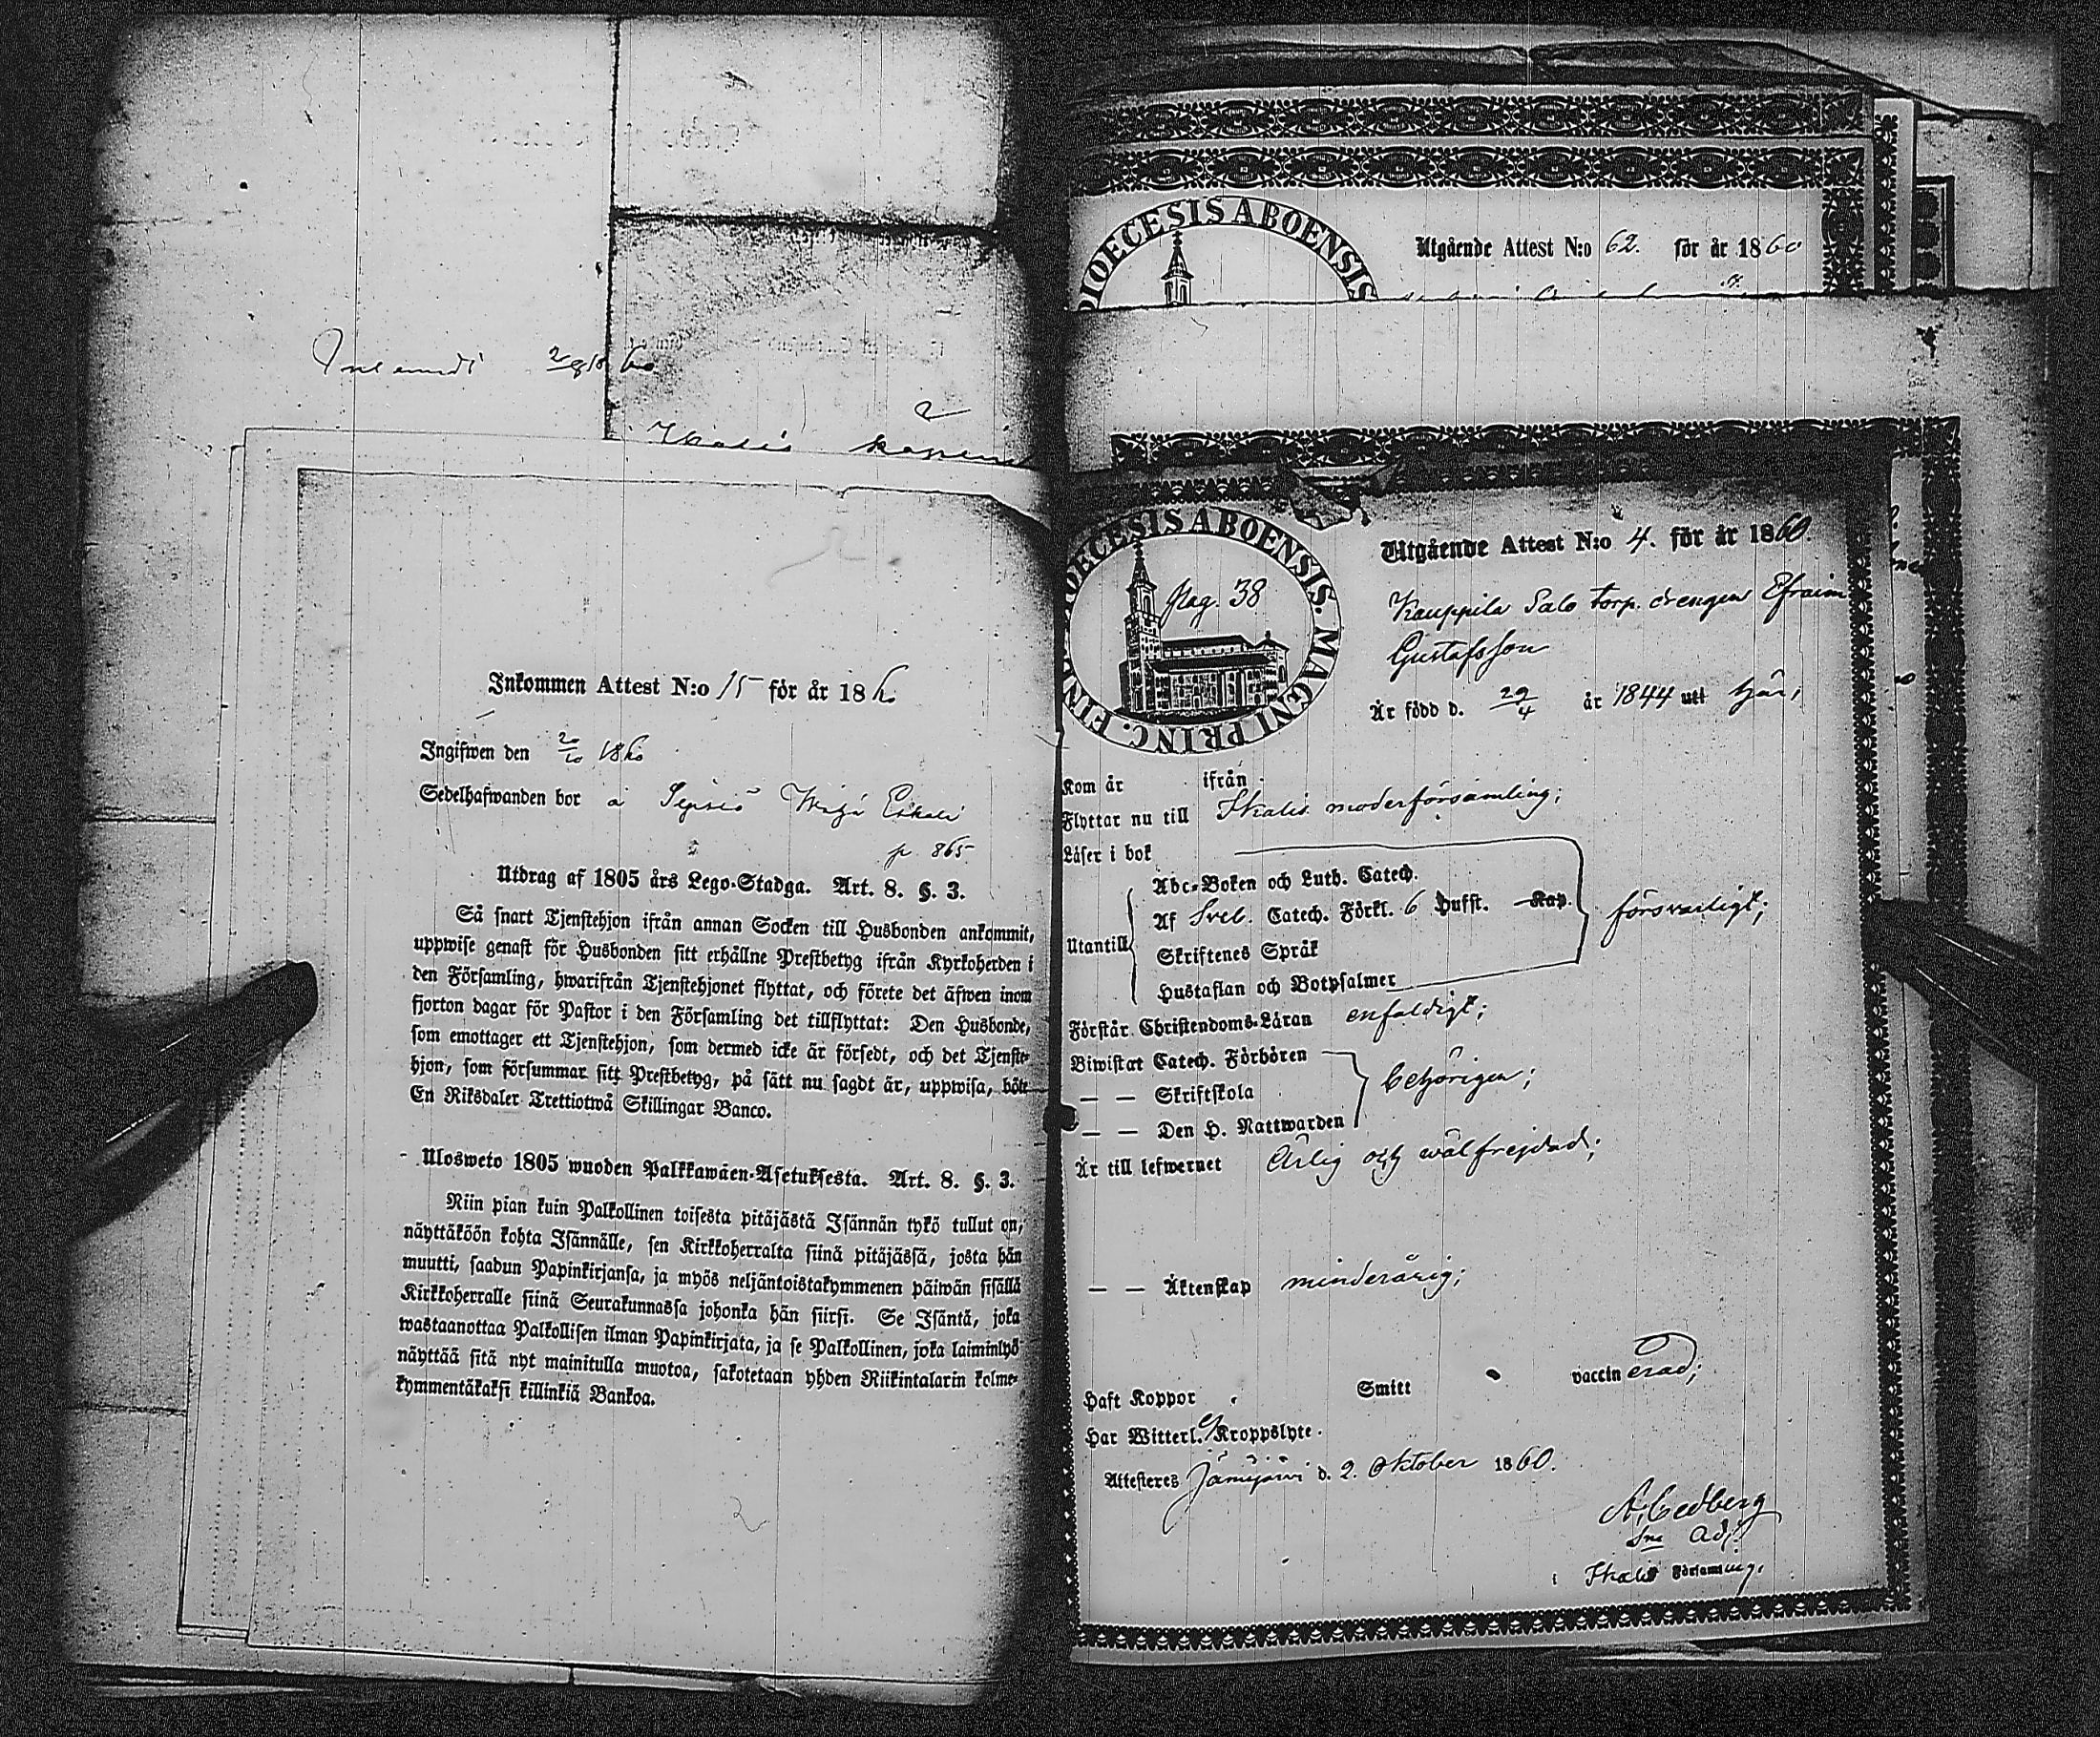 1860
2
Inkommen Attest N:o 15 för år 1860
Ingifwen den 2/10 1860
Sedelhafwanden bor å
p 865
Utdrag af 1805 års Lego-Stadga. Art. 8. §. 3.
Så snart Tjenstehjon ifrån annan Socken till Husbonden ankommit,
uppwise genast för Husbonden sitt erhållne Prestbetyg ifrån Kyrkoherden i
den Församling, hwarifrån Tjenstehjonet flyttat, och förete det äfwen inom
fjorton dagar för Pastor i den Församling det tillflyttat: Den Husbonde,
som emottager ett Tjenstehjon, som dermed icke är försedt, och det Tjenste-
hjon, som försummar sitt Prestbetyg, på sätt nu sagdt är, uppwisa, böte
En Riksdaler Trettiotwå Skillingar Banco.
Ulosweto 1805 wuoden Palkkawäen-Asetuksesta. Art. 8. §. 3.
Niin pian kuin Palkollinen toisesta pitäjästä Isännän tykö tullut on,
näyttäköön kohta Isännälle, sen Kirkkoherralta siinä pitäjässä, josta hän
muutti, saadun Papinkirjansa, ja myös neljäntoistakymmenen päiwän sisällä
Kirkkoherralle siinä Seurakunnassa johonka hän siirsi. Se Isäntä, joka
wastaanottaa Palkollisen ilman Papinkirjata, ja se Palkollinen, joka laiminlyö
näyttää sitä nyt mainitulla muotoa, sakotetaan yhden Riikintalarin kolme-
kymmentäkaksi killinkiä Bankoa.
DIOECESIS ABOENSIS
Utgående Attest N:o 62. för år 1860
DIOECESIS ABOENSIS. MAGNI PRINC. FINL
Pag. 38
Utgående Attest N:o 4. för år 1860.
Kauppila Salo torp. drengen Efraim
Gustafsson
Är född d. 29/4 år 1844 uti här;
Kom år ifrån
Flyttar nu till Ikalis moderförsamling;
Läser i bok
Utantill
Abc-Boken och Luth. Catech.
Af Sveb. Catech. Förkl. 6 Hufst. Kap.
försvarligt;
Skriftenes Språk
Hustaflan och Botpsalmer
Förstår Christendoms-Läran enfaldigt;
Biwistat Catech. Förhören
— — Skriftskola
behörigen;
— — Den H. Nattwarden
Är till lefwernet Ärlig och wälfrejdad;
— — Äktenskap minderårig;
Haft Koppor Smitt vaccinerad;
Har Witterl. ej Kroppslyte.
Attesteres Jämijärvi d. 2. Oktober 1860.
A. Cedberg
Adj.
i Ikalis Församling.